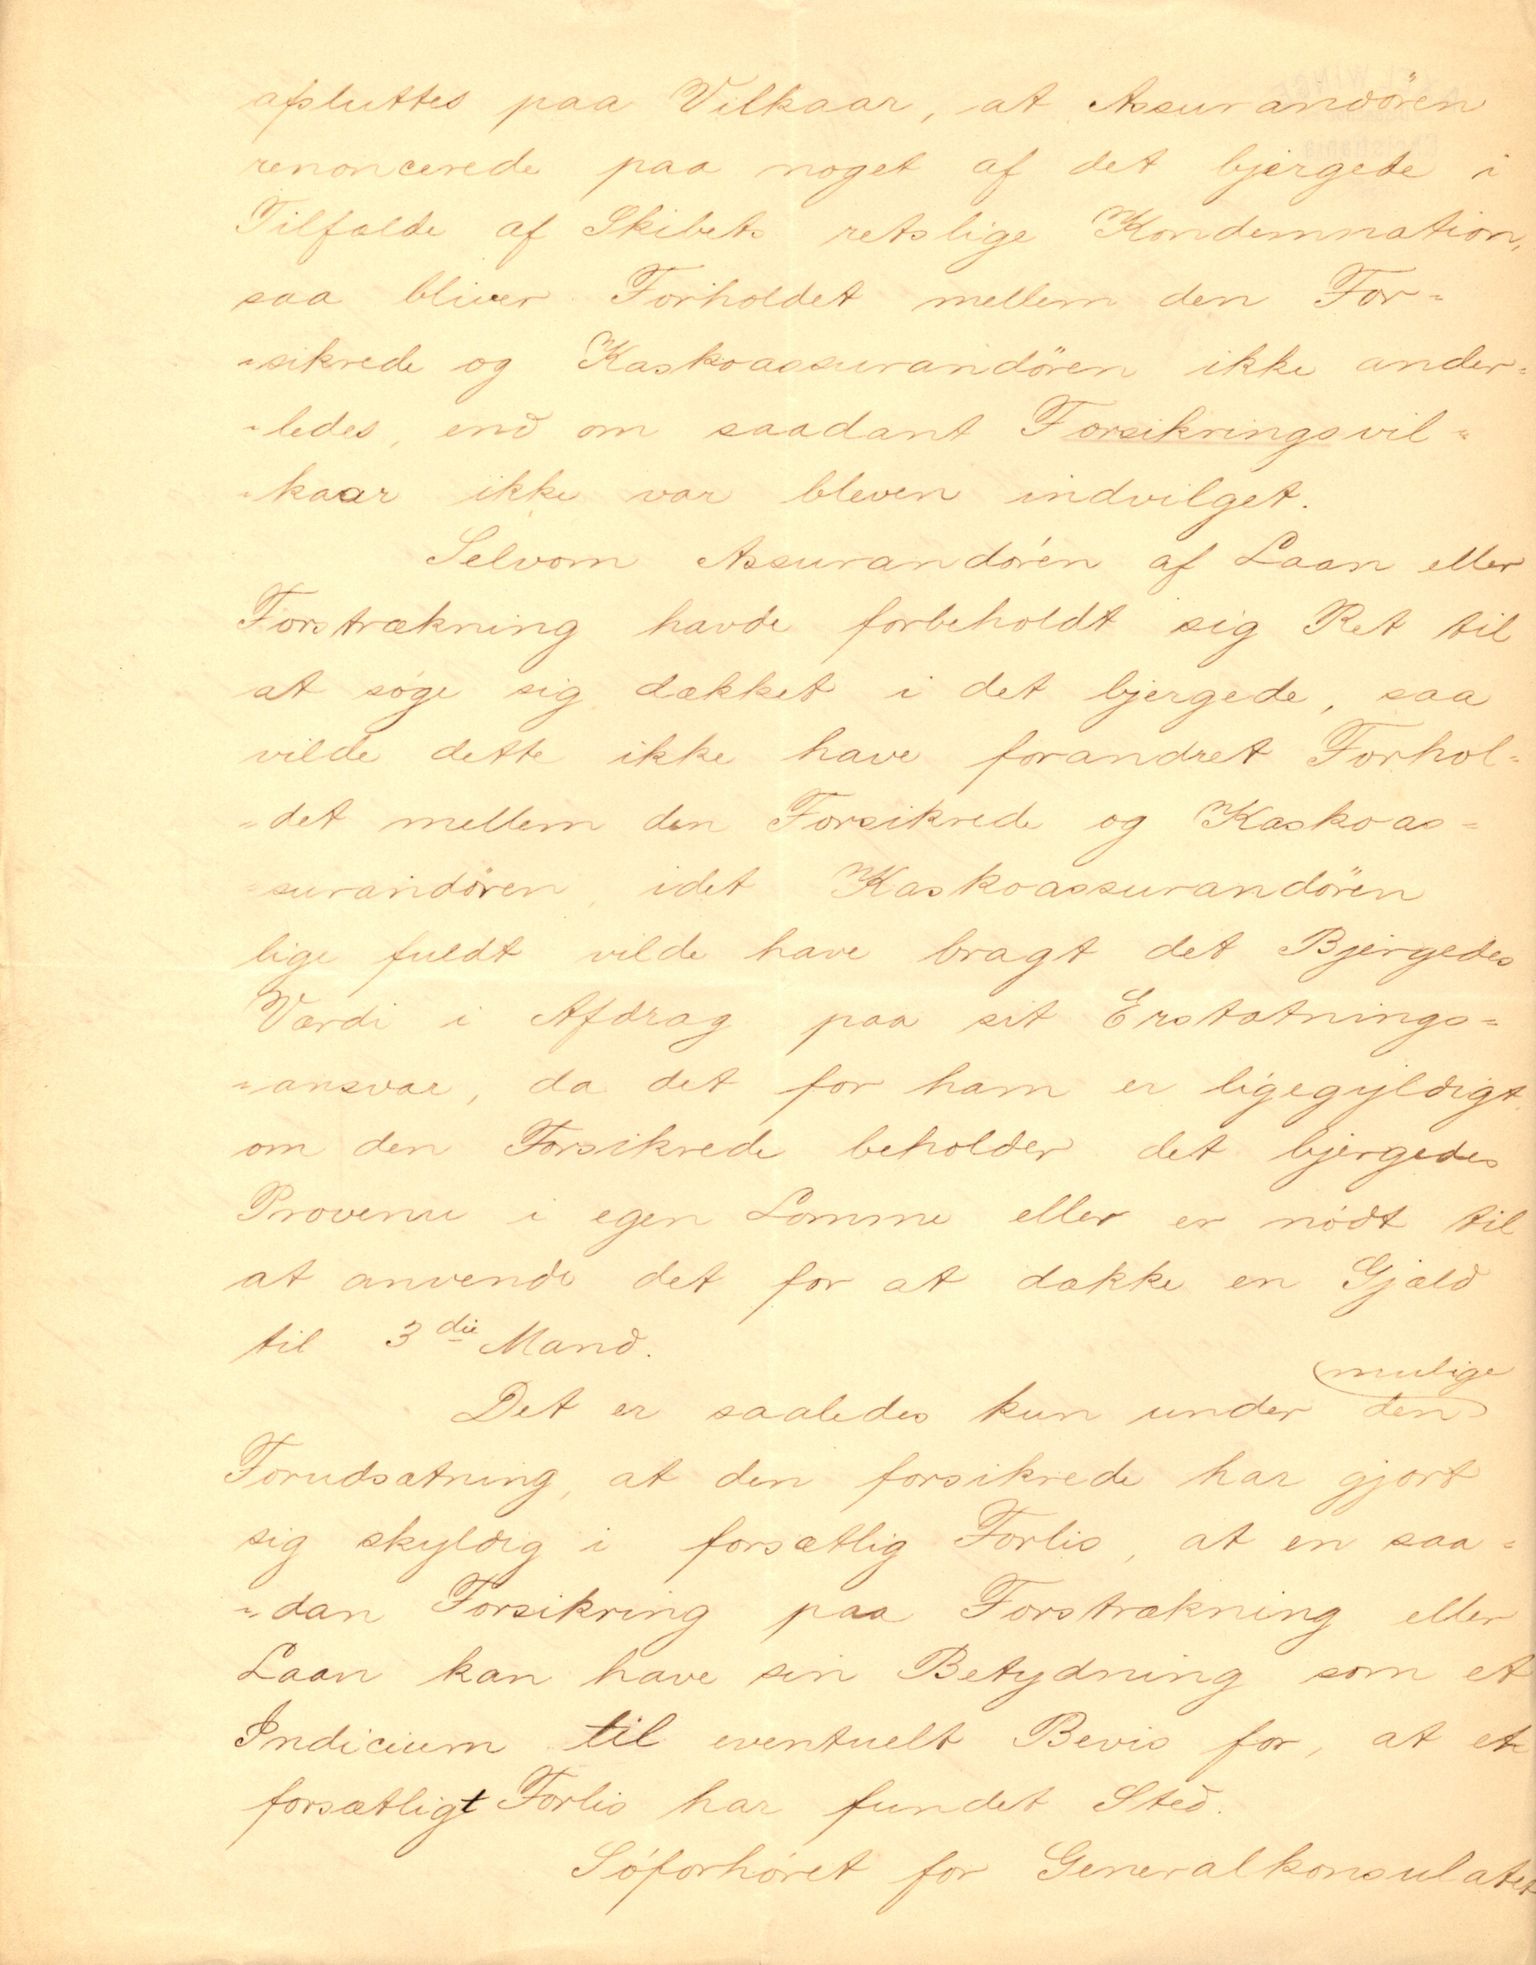 afsluttes paa Vilkaar, at Assurandören
renoncerede paa noget af det bjergede i
Tilfælde af Skibets retslige Kondemnation,
saa bliver Forholdet mellem den For-
-sikrede og Kaskoassurandören ikke ander-
-ledes, end om saadant Forsikringsvil-
-kaar ikke var bleven indvilget.
Selvom Assurandören af Laan eller
Forstrækning havde forbeholdt sig Ret til
at søge sig dækket i det bjergede, saa
vilde dette ikke have forandret Forhol-
-det mellem den Forsikrede og Kaskoas-
-surandören, idet Kaskoassurandören
lige fuldt vilde have bragt det Bjergedes
Værdi i Afdrag paa sit Erstatnings-
-ansvar, da det for ham er ligegyldigt,
om den Forsikrede beholder det bjergedes
Provenu i egen Lomme eller er nødt til
at anvende det for at dække en Gjæld
til 3die Mand.
mulige
Det er saaledes kun under den
Forudsætning, at den forsikrede har gjort
sig skyldig i forsætlig Forlis, at en saa-
-dan Forsikring paa Forstrækning eller
Laan kan have sin Betydning som et
Indicium til eventuelt Bevis for, at et
forsætligt Forlis har fundet Sted.
Søforhøret for Generalkonsulatet